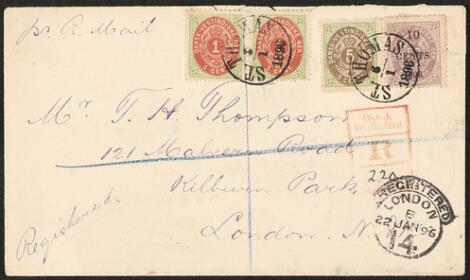 pr R. Mail
DANSK-VESTINDISKE ØER
1
CENT
ST. THOMAS
6/1
1896
5
10
CENTS
ST. THOMAS
6/1
1896
Mr T. H. Thompson
121 Malvern Road
Kilburn Park
London. N.
Registered.
Dansk
Vestindien
R
220
REGISTERED
LONDON
22 JAN 96
14